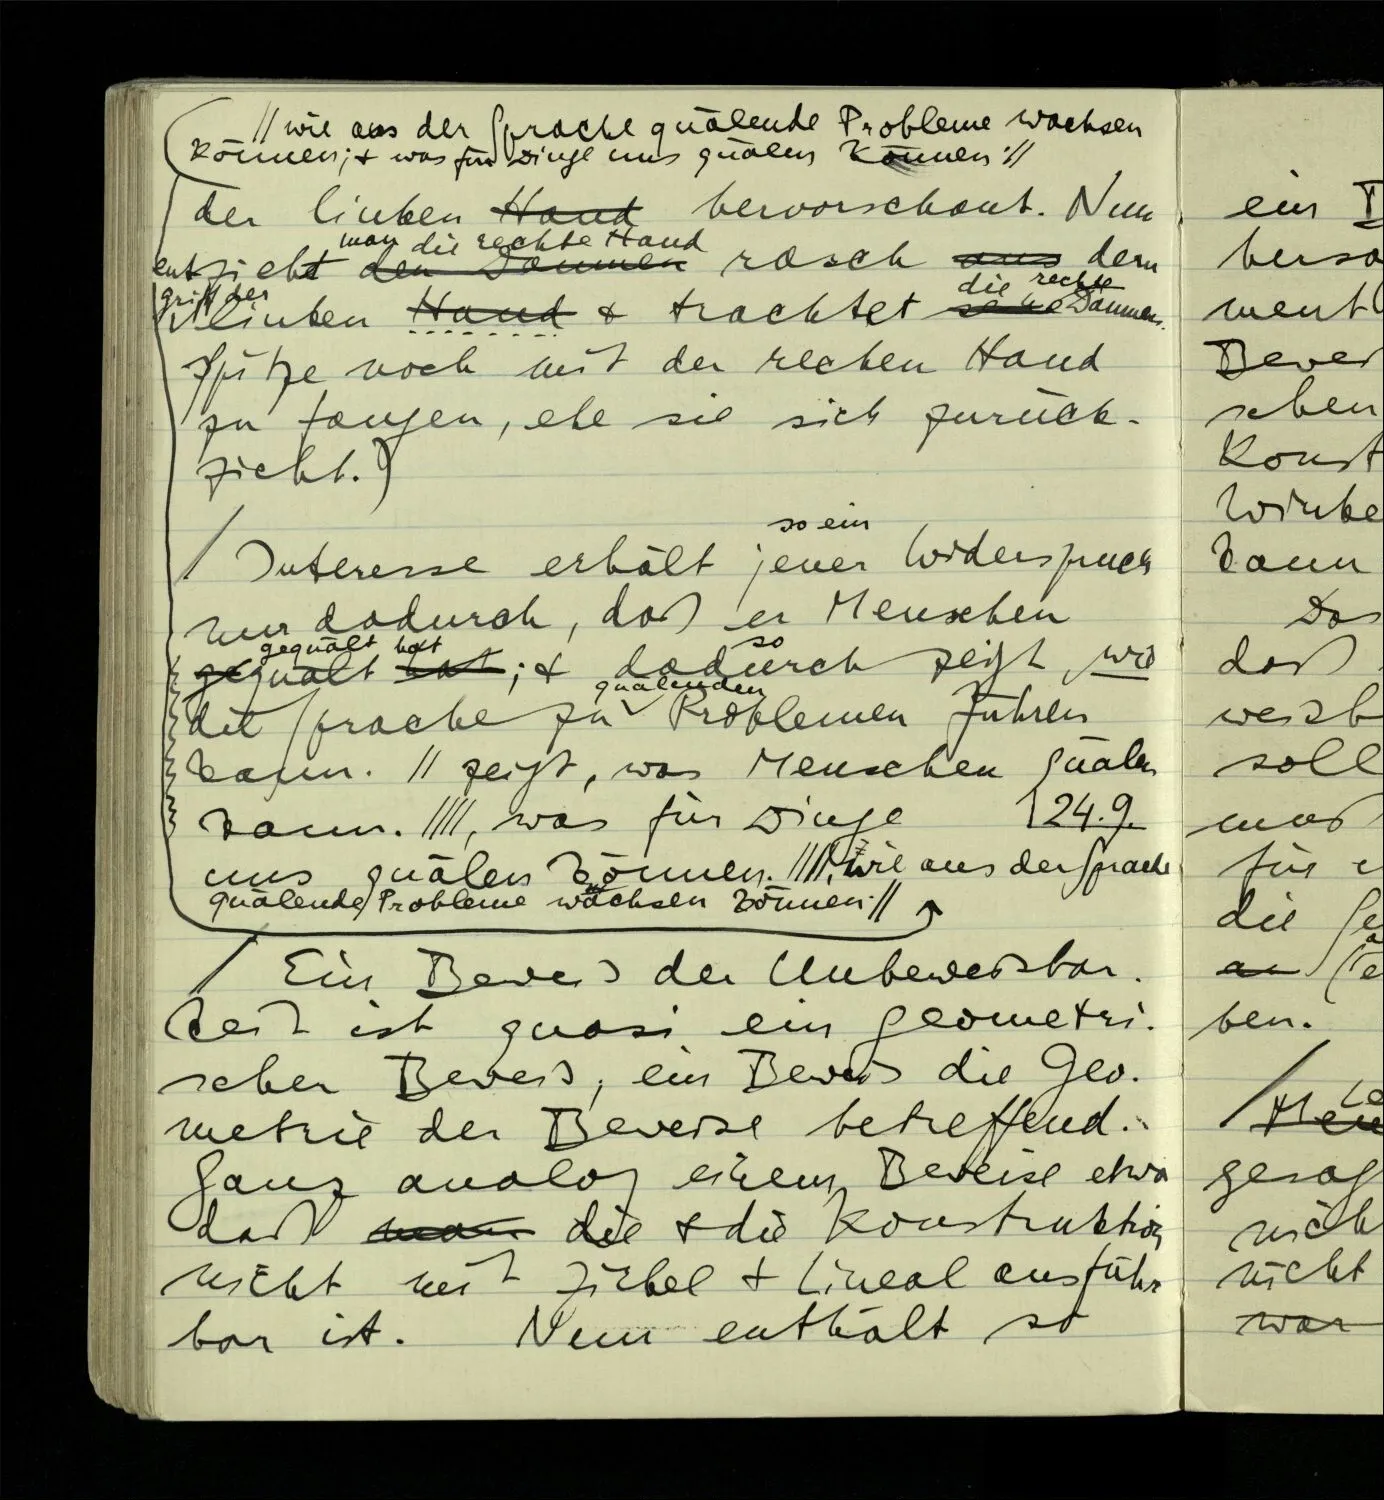 // wie aus der Sprache quälende Probleme wachsen
können; & was für Dinge uns quälen können. //
der linken Hand hervorschaut. Nun
man die rechte Hand
entzieht den Daumen rasch aus dem
griff der die rechte
linken Hand & trachtet seine Daumen-
spitze noch mit der rechen Hand
zu fangen, ehe sie sich zurück-
zieht.)
so ein
/ Interesse erhält jener Widerspruch
nur dadurch, daß er Menschen
gequält hat so
gequält hat; & dadurch zeigt, wie
quälenden
die Sprache zu Problemen führen
kann. // zeigt, was Menschen quälen
kann. ////, was für Dinge 24.9.
uns quälen können. ////, wie aus der Sprache
quälende Probleme wachsen können. //
/ Ein Beweis der Unbeweisbar-
keit ist quasi ein geometri-
scher Beweis, ein Beweis die Geo-
metrie der Beweise betreffend.
Ganz analog einem Beweise etwa
daß man die & die Konstruktion
nicht mit Zirkel & Lineal ausführ
bar ist. Nun enthält so
ein
ment
schen
Konst
kann
daß
soll
für
die
an
ben.
/
gesag
nicht
war